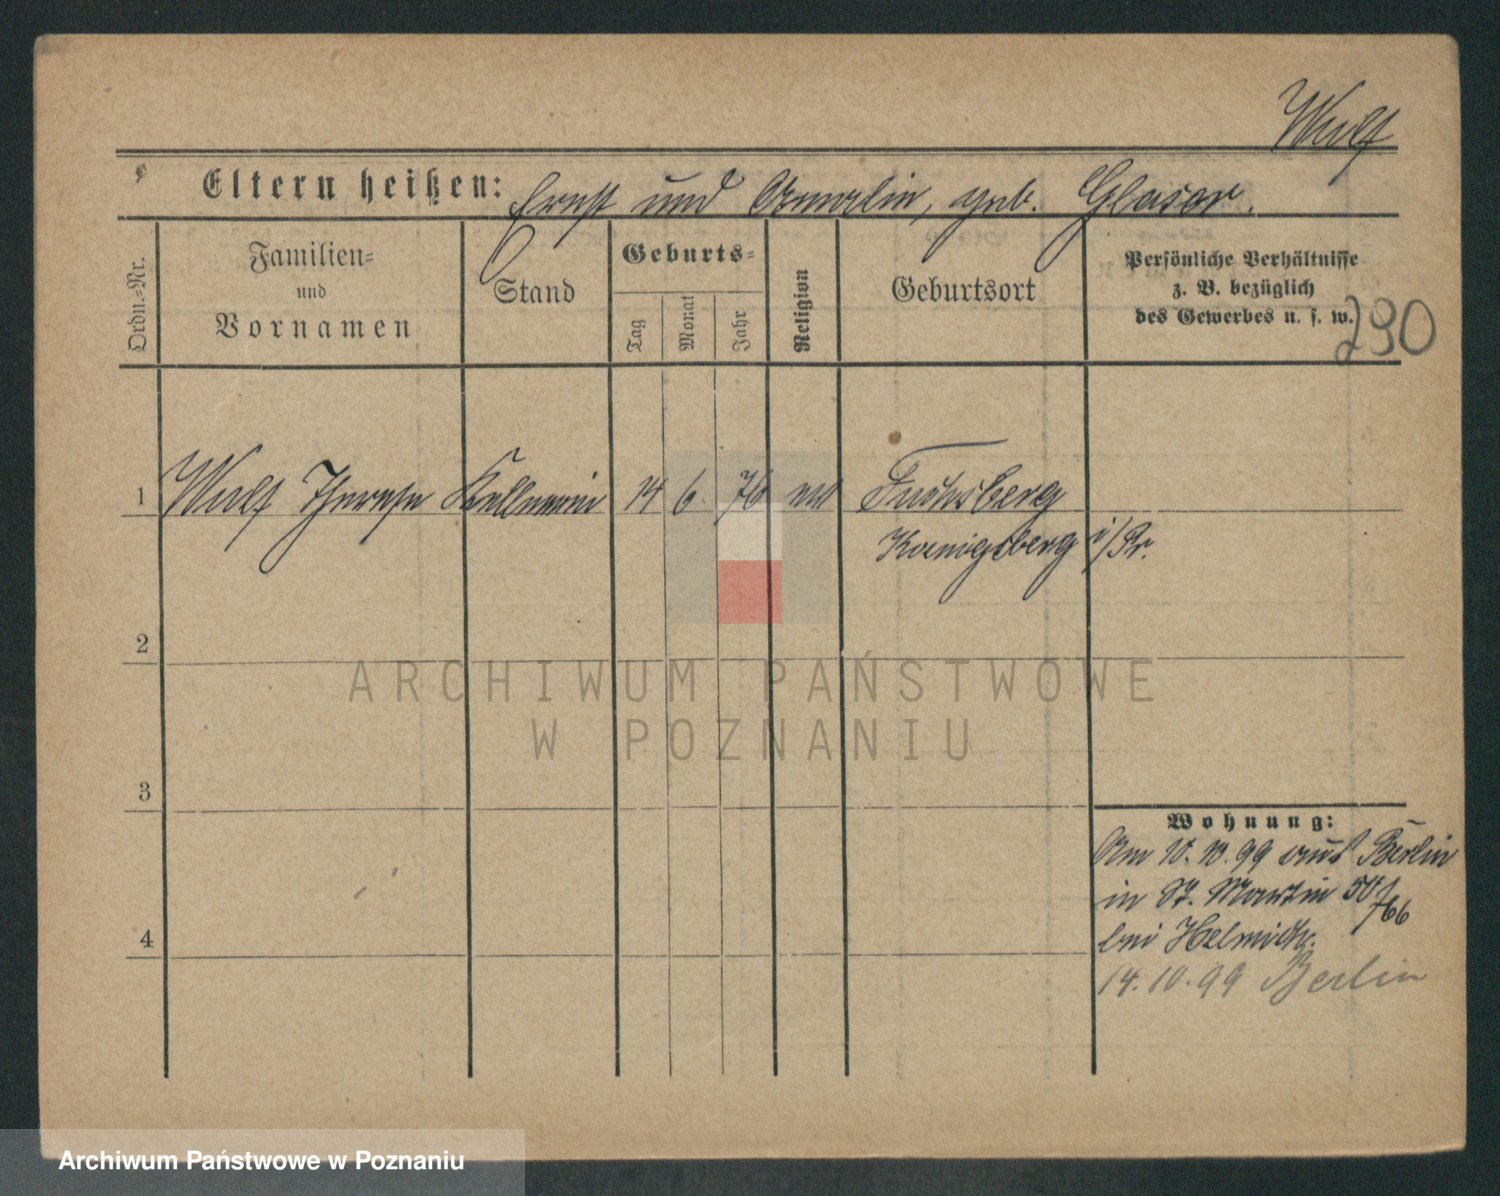 Wulf
Eltern heißen: Ernst und Amalie, geb. Glaser.
Ordn.-Nr.
Familien-
und
Vornamen
Stand
Geburts-
Tag
Monat
Jahr
Religion
Geburtsort
Persönliche Verhältnisse
z. B. bezüglich
des Gewerbes u. s. w.
290
1 Wulf Therese Kellnerin 14 6. 76 ev Fuchsberg
Koenigsberg i/Pr.
2
ARCHIWUM PAŃSTWOWE
W POZNANIU
3
Wohnung:
Am 10. 10. 99 aus Berlin
in St. Martin 50/66
bei
4
14. 10. 99 Berlin
Archiwum Państwowe w Poznaniu